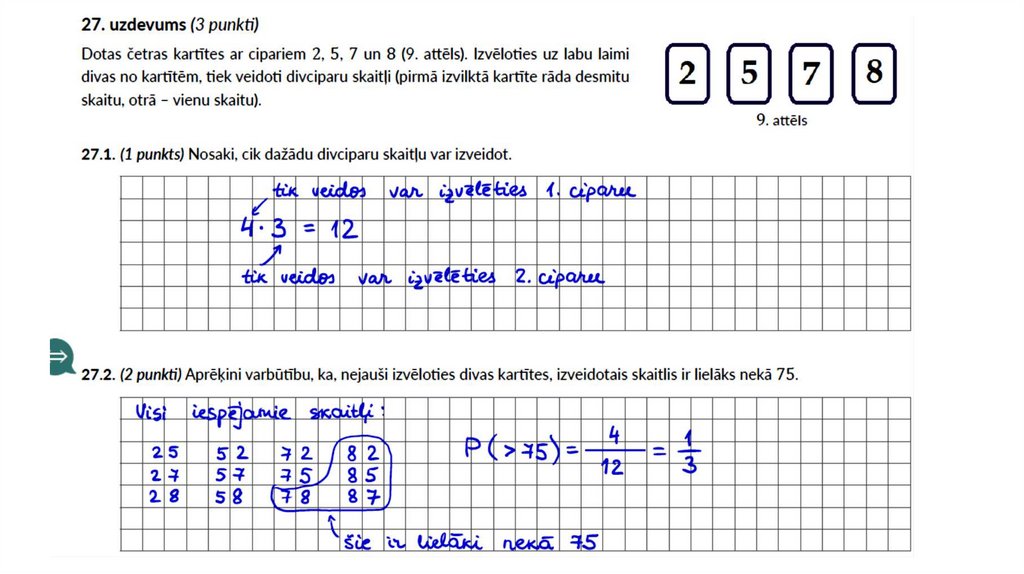 27. uzdevums (3 punkti)
Dotas četras kartītes ar cipariem 2, 5, 7 un 8 (9. attēls). Izvēloties uz labu laimi
divas no kartītēm, tiek veidoti divciparu skaitļi (pirmā izvilktā kartīte rāda desmitu
skaitu, otrā – vienu skaitu).
2 5 7 8
9. attēls
27.1. (1 punkts) Nosaki, cik dažādu divciparu skaitļu var izveidot.
tik veidos var izvēlēties 1. ciparu
4 · 3 = 12
tik veidos var izvēlēties 2. ciparu
⇒
27.2. (2 punkti) Aprēķini varbūtību, ka, nejauši izvēloties divas kartītes, izveidotais skaitlis ir lielāks nekā 75.
Visi iespējamie skaitļi:
25 52 72 82
27 57 75 85
28 58 78 87
P(>75) = 4/12 = 1/3
šie ir lielāki nekā 75